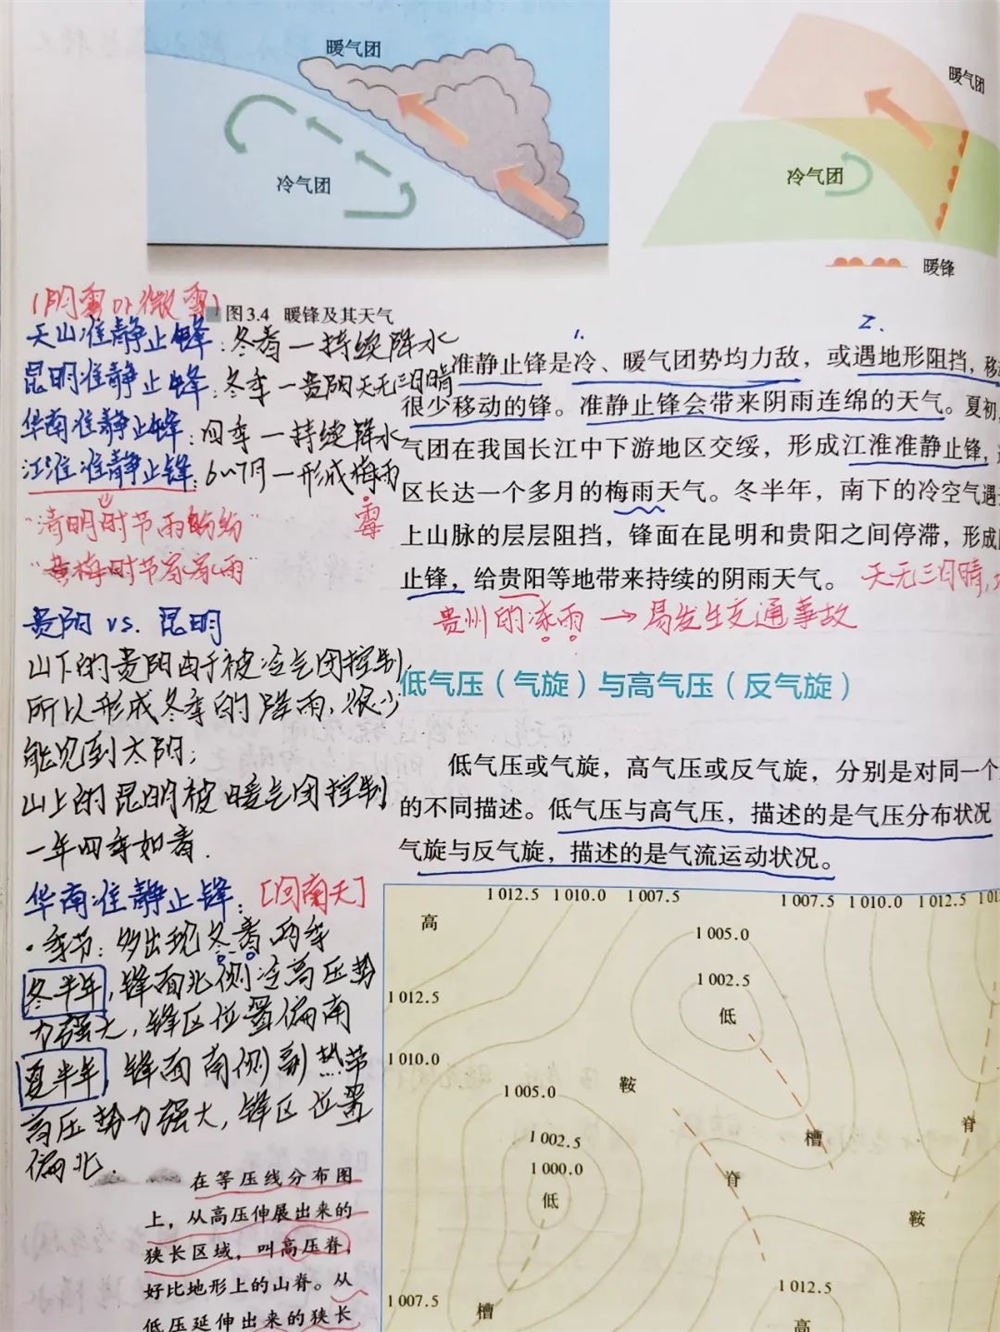 暖气团
冷气团
暖气团
冷气团
暖锋
图3.4 暖锋及其天气
天山准静止锋：冬春—持续降水
昆明准静止锋：冬季—贵阳天无三日晴
华南准静止锋：四季—持续降水
江淮准静止锋：6~7月—形成梅雨
霉
"清明时节雨纷纷"
"黄梅时节家家雨"
贵阳 vs. 昆明
山下的贵阳由于被冷气团控制,
所以形成冬季的降雨,很少
能见到太阳;
山上的昆明被暖气团控制
一年四季如春.
华南准静止锋：[回南天]
·季节：多出现冬春两季
冬半年,锋面北侧冷高压势
力强大,锋区位置偏南
夏半年,锋面南侧副热带
高压势力强大,锋区位置
偏北.
在等压线分布图
上，从高压伸展出来的
狭长区域，叫高压脊，
好比地形上的山脊。从
低压延伸出来的狭长
1.
2.
准静止锋是冷、暖气团势均力敌，或遇地形阻挡，移
很少移动的锋。准静止锋会带来阴雨连绵的天气。夏初，
气团在我国长江中下游地区交绥，形成江淮准静止锋，
区长达一个多月的梅雨天气。冬半年，南下的冷空气遇
上山脉的层层阻挡，锋面在昆明和贵阳之间停滞，形成
止锋，给贵阳等地带来持续的阴雨天气。 天无三日晴,
贵州的冻雨→易发生交通事故
低气压（气旋）与高气压（反气旋）
低气压或气旋，高气压或反气旋，分别是对同一个
的不同描述。低气压与高气压，描述的是气压分布状况
气旋与反气旋，描述的是气流运动状况。
1 012.5 1 010.0 1 007.5 1 007.5 1 010.0 1 012.5
高
1 005.0
1 002.5
低
1 012.5
1 010.0
鞍
1 005.0
槽
脊
1 002.5
1 000.0
脊
低
鞍
1 012.5
1 007.5
槽
高